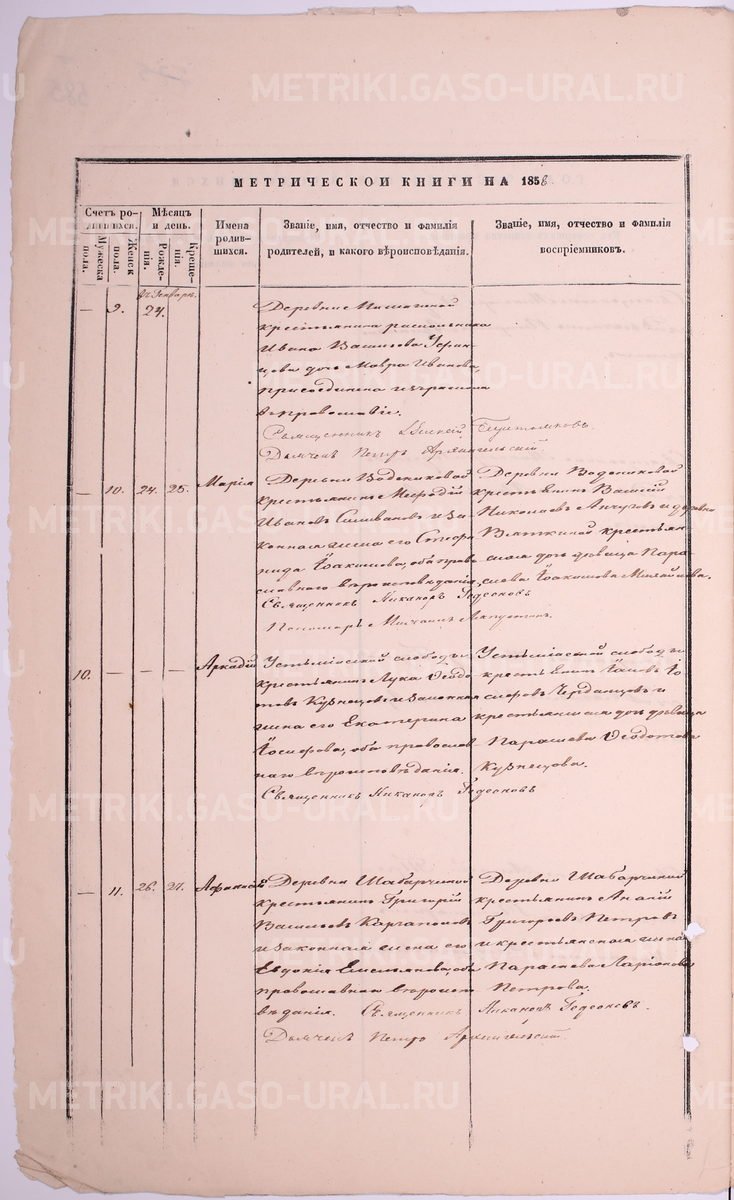 METRIKI.GASO-URAL.RU
МЕТРИЧЕСКОЙ КНИГИ НА 1858.
Счетъ родившихся.
Мужеска пола.
Женск пола.
Мѣсяцъ и день.
Рожденія.
Крещенія.
Имена родившихся.
Званіе, имя, отчество и фамилія родителей, и какого вѣроисповѣданія.
Званіе, имя, отчество и фамилія воспріемниковъ.
Генваря.
— 9. 24.
Деревни
крестьянина раскольника
Ивана Васильева
дочь Мавра Иванова,
присоединена изъ раскола
въ православіе.
Священникъ
Дьячекъ Петръ Архангельскій
— 10. 24. 25. Марія
Деревни Водениковой
крестьянинъ Меѳодій
Ивановъ Селивановъ и За
конная жена его Стефа
нида Іоакимова, оба право
славнаго вѣроисповѣданія.
Священникъ Никаноръ Гедеоновъ
Пономарь Михаилъ
Деревни Водениковой
крестьянинъ Василій
Николаевъ Анчуговъ и деревни
Вяткиной крестьян
ская дочь дѣвица Пара
скева Іоакимова
10. — — — Аркадій
слободы
крестьянинъ Лука Ѳедо
товъ Кузнецовъ и Законная
жена его Екатерина
Іосифова, оба православ
наго вѣроисповѣданія.
Священникъ Никаноръ Гедеоновъ
слободы
крестьянинъ Іаковъ Іо
сифовъ Черданцовъ и
крестьянская дочь дѣвица
Параскева Ѳеодотова
Кузнецова.
— 11. 26. 27.
Деревни Шабарчиной
крестьянинъ Григорій
Васильевъ Каргаполовъ
и Законная жена его
Евдокія Емельянова, оба
православнаго вѣроиспо
вѣданія. Священникъ Никаноръ Гедеоновъ.
Дьячекъ Петръ Архангельскій.
Деревни Шабарчиной
крестьянинъ Ананій
Григорьевъ Петровъ
и крестьянская жена
Параскева Ларіонова
Петрова.